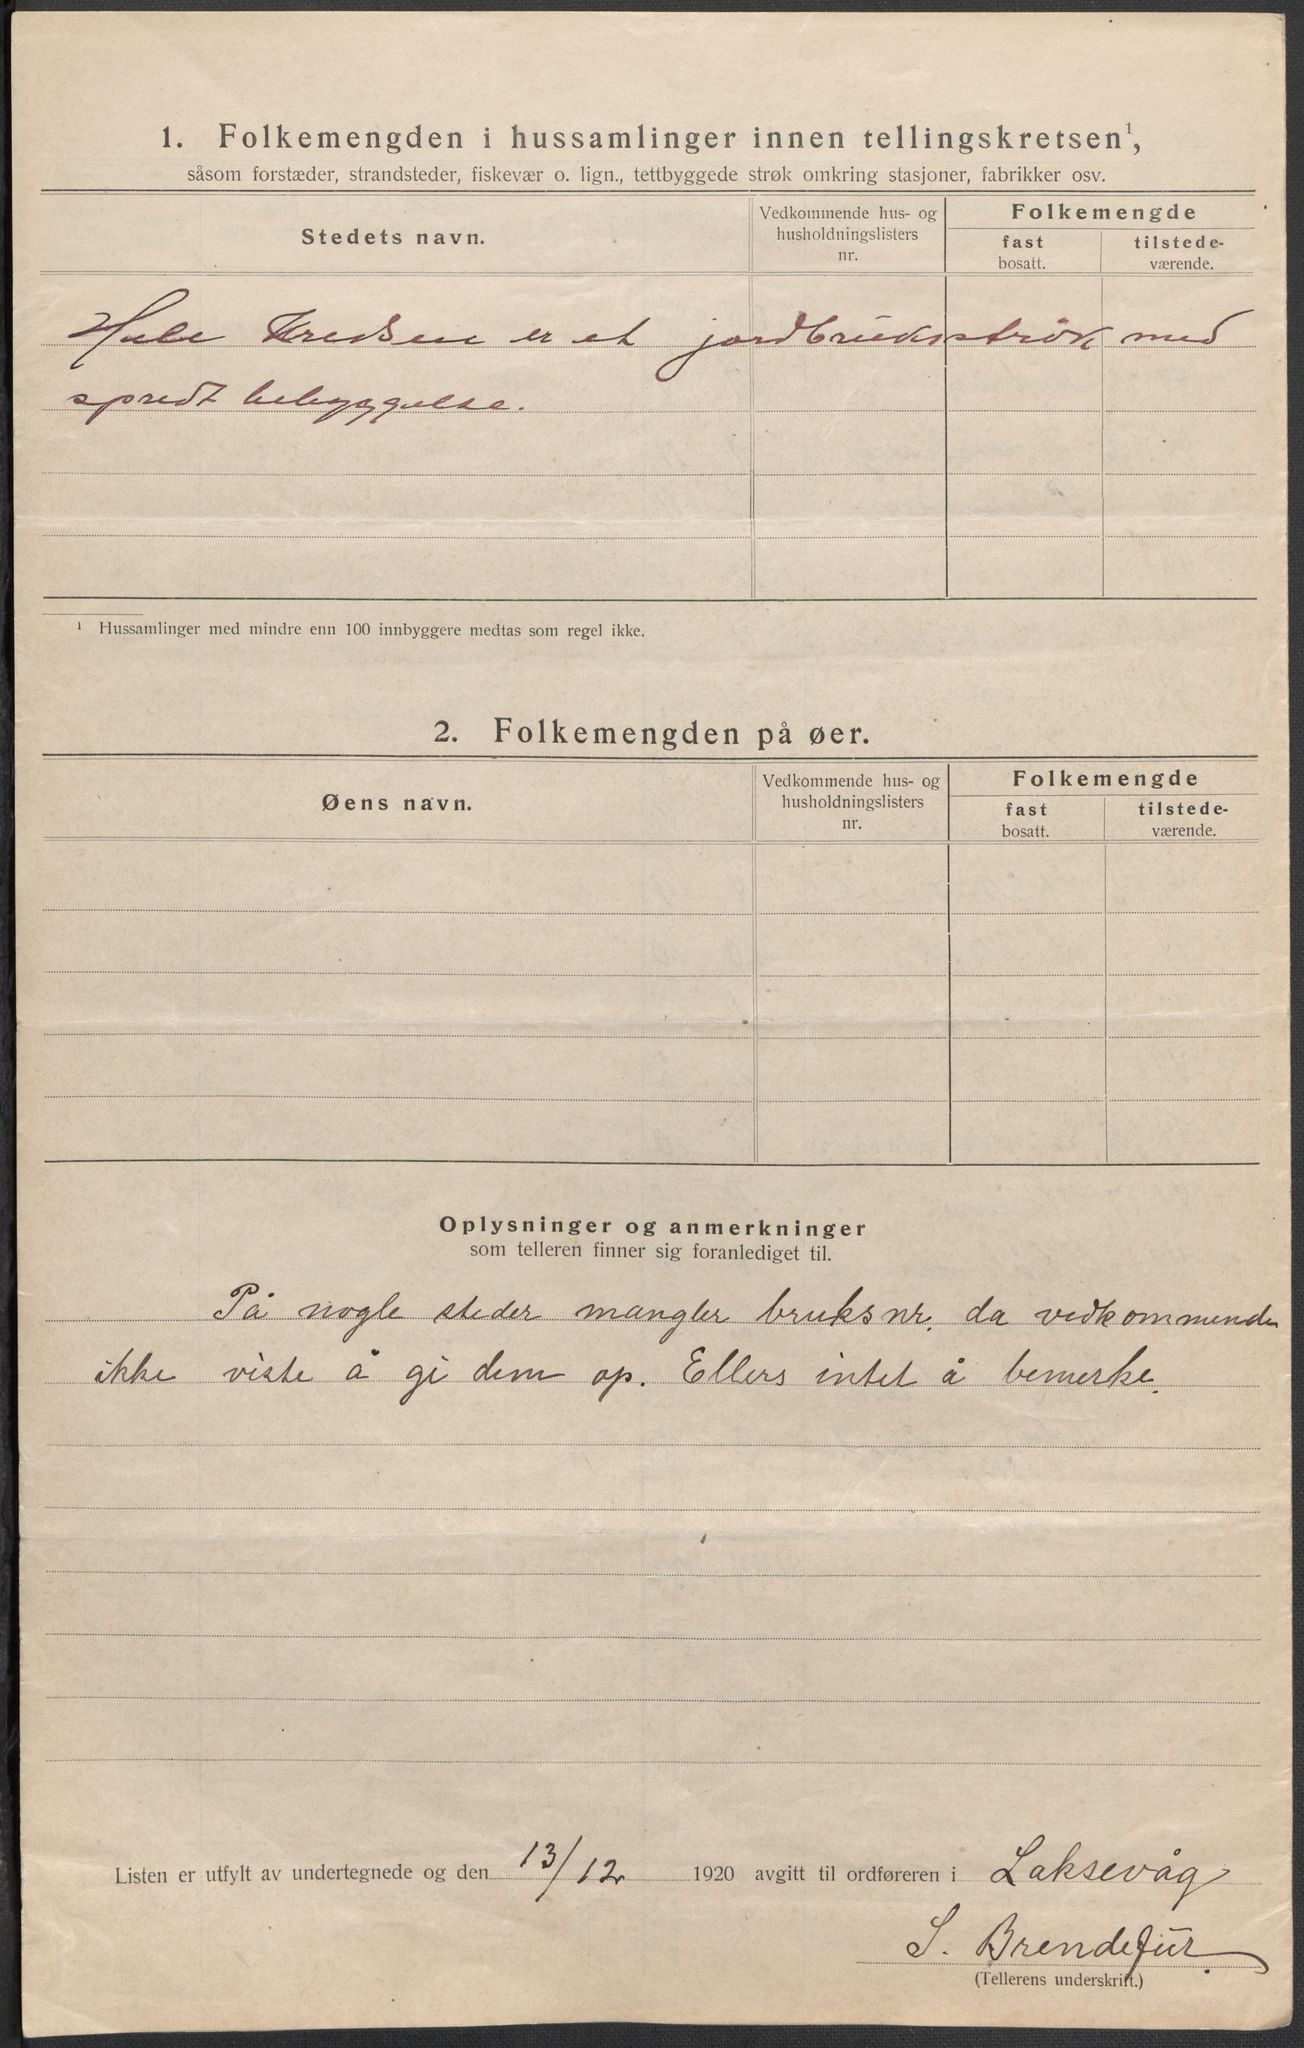 1. Folkemengden i hussamlinger innen tellingskretsen¹,
såsom forstæder, strandsteder, fiskevær o. lign., tettbyggede strøk omkring stasjoner, fabrikker osv.
Stedets navn.
Vedkommende hus- og
husholdningslisters
nr.
Folkemengde
fast
bosatt.
tilstede-
værende.
Hele Kredsen er et jordbruksstrøk med
spredt bebyggelse.
¹ Hussamlinger med mindre enn 100 innbyggere medtas som regel ikke.
2. Folkemengden på øer.
Øens navn.
Vedkommende hus- og
husholdningslisters
nr.
Folkemengde
fast
bosatt.
tilstede-
værende.
Oplysninger og anmerkninger
som telleren finner sig foranlediget til.
På nogle steder mangler bruksnr. da vedkommende
ikke viste å gi dem op. Ellers intet å bemerke.
Listen er utfylt av undertegnede og den 13/12 1920 avgitt til ordføreren i Laksevåg
S. Brendejur
(Tellerens underskrift.)